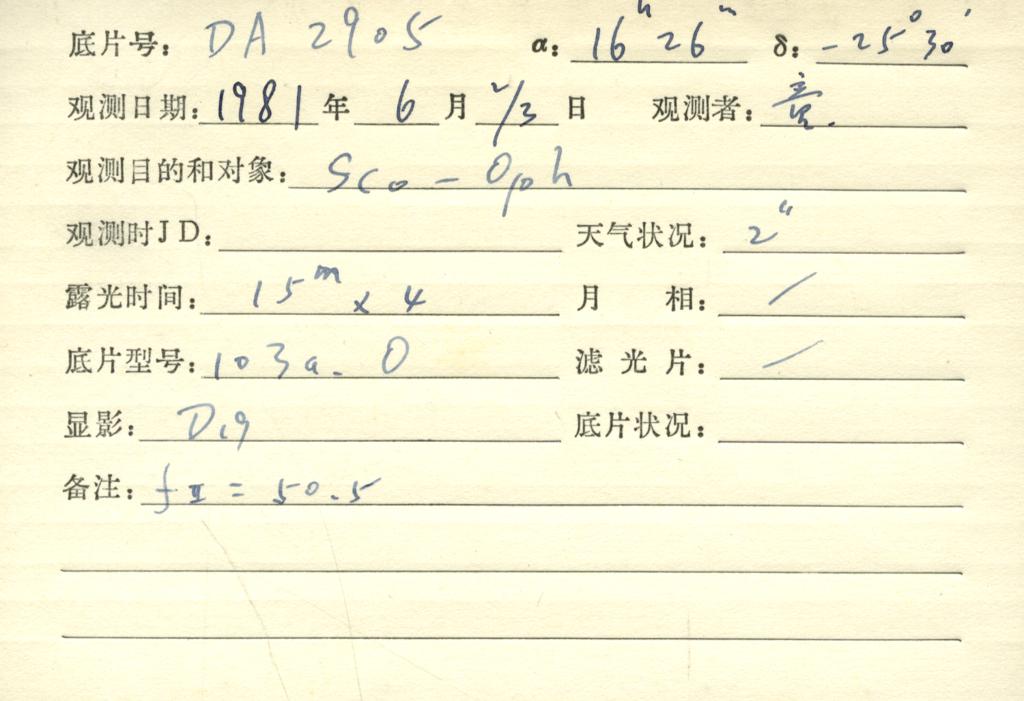 底片号: DA 2905 α: 16ʰ 26ᵐ δ: -25° 30′
观测日期: 1981 年 6 月 2/3 日 观测者:
观测目的和对象: Sco - Oph
观测时JD: 天气状况: 2"
露光时间: 15ᵐ x 4 月 相: /
底片型号: 103a-O 滤光片: /
显影: D19 底片状况:
备注: fⅡ = 50.5